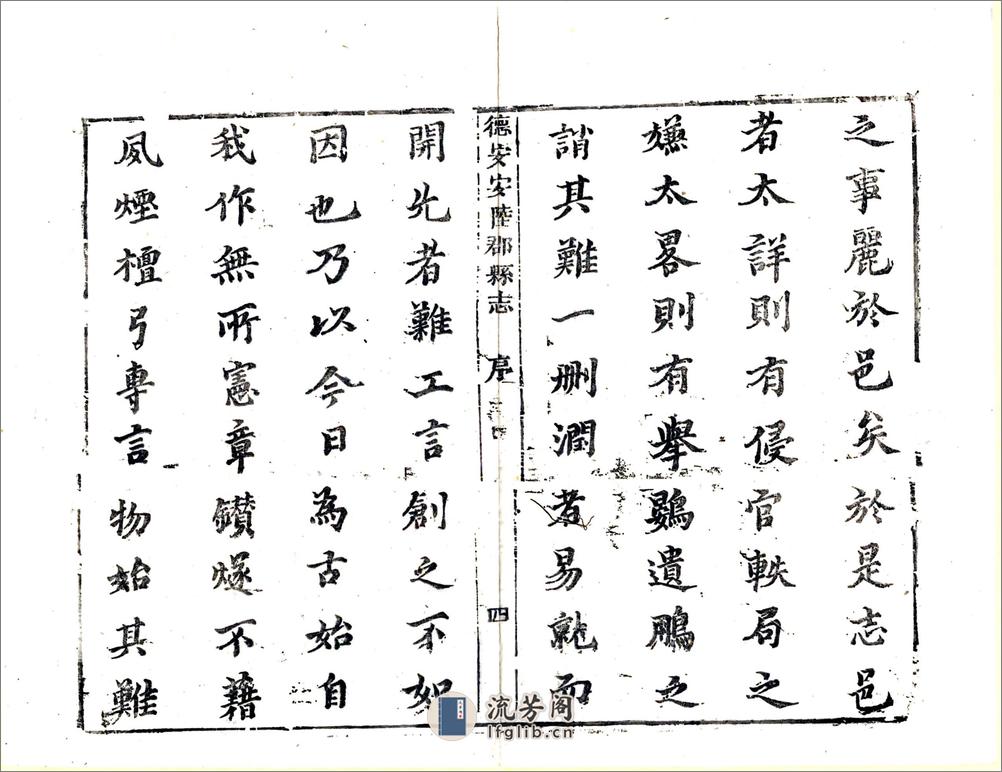 之事麗於邑矣於是志邑
者太詳則有侵官軼局之
嫌太畧則有舉鷃遺鵬之
誚其難一刪潤者易就而
德安安陸郡縣志 序 四
開先者難工言創之不如
因也乃以今日為古始自
我作無所憲章鑚燧不藉
夙煙檀弓專言物始其難
流芳阁
lfglib.cn